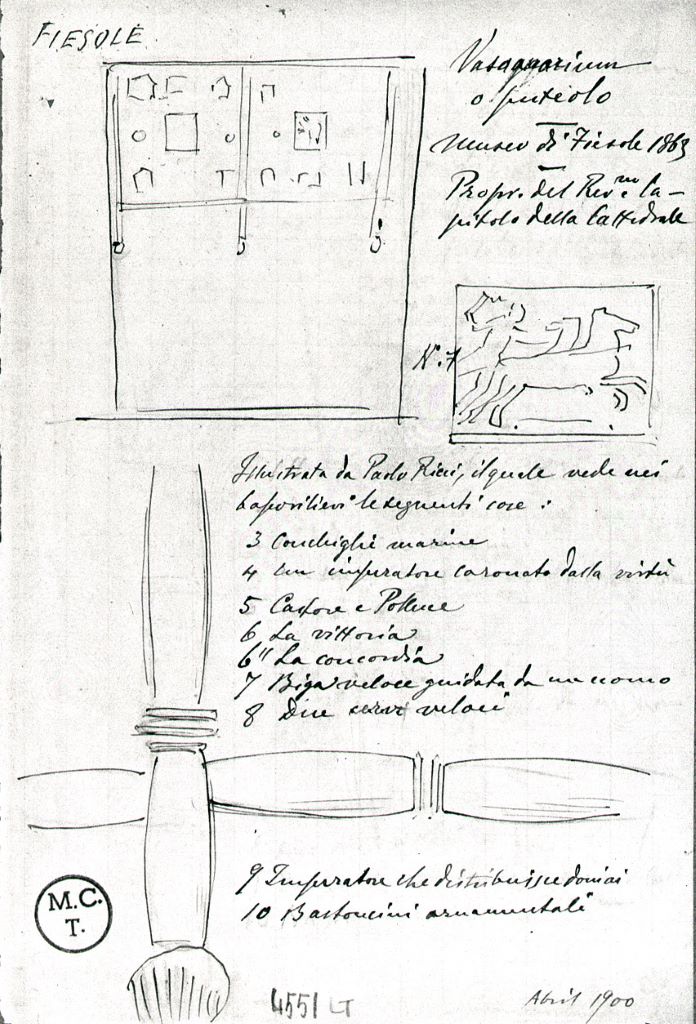 FIESOLE
Vasquarium
o puteolo
Museo di Fiesole 1863
Propr. del Rev.mo Ca-
pitolo della Cattedrale
N. 7
Illustrata da Paolo Ricci, il quale vede nei
bassorilievi le seguenti cose :
3 Conchiglie marine
4 un imperatore coronato dalla virtù
5 Castore e Polluce
6 La vittoria
6" La concordia
7 Biga veloce guidata da un uomo
8 Due cervi veloci
9 Imperatore che distribuisce donni
10 Bastoncini ornamentali
M.C.
T.
4551 LT
Abril 1900